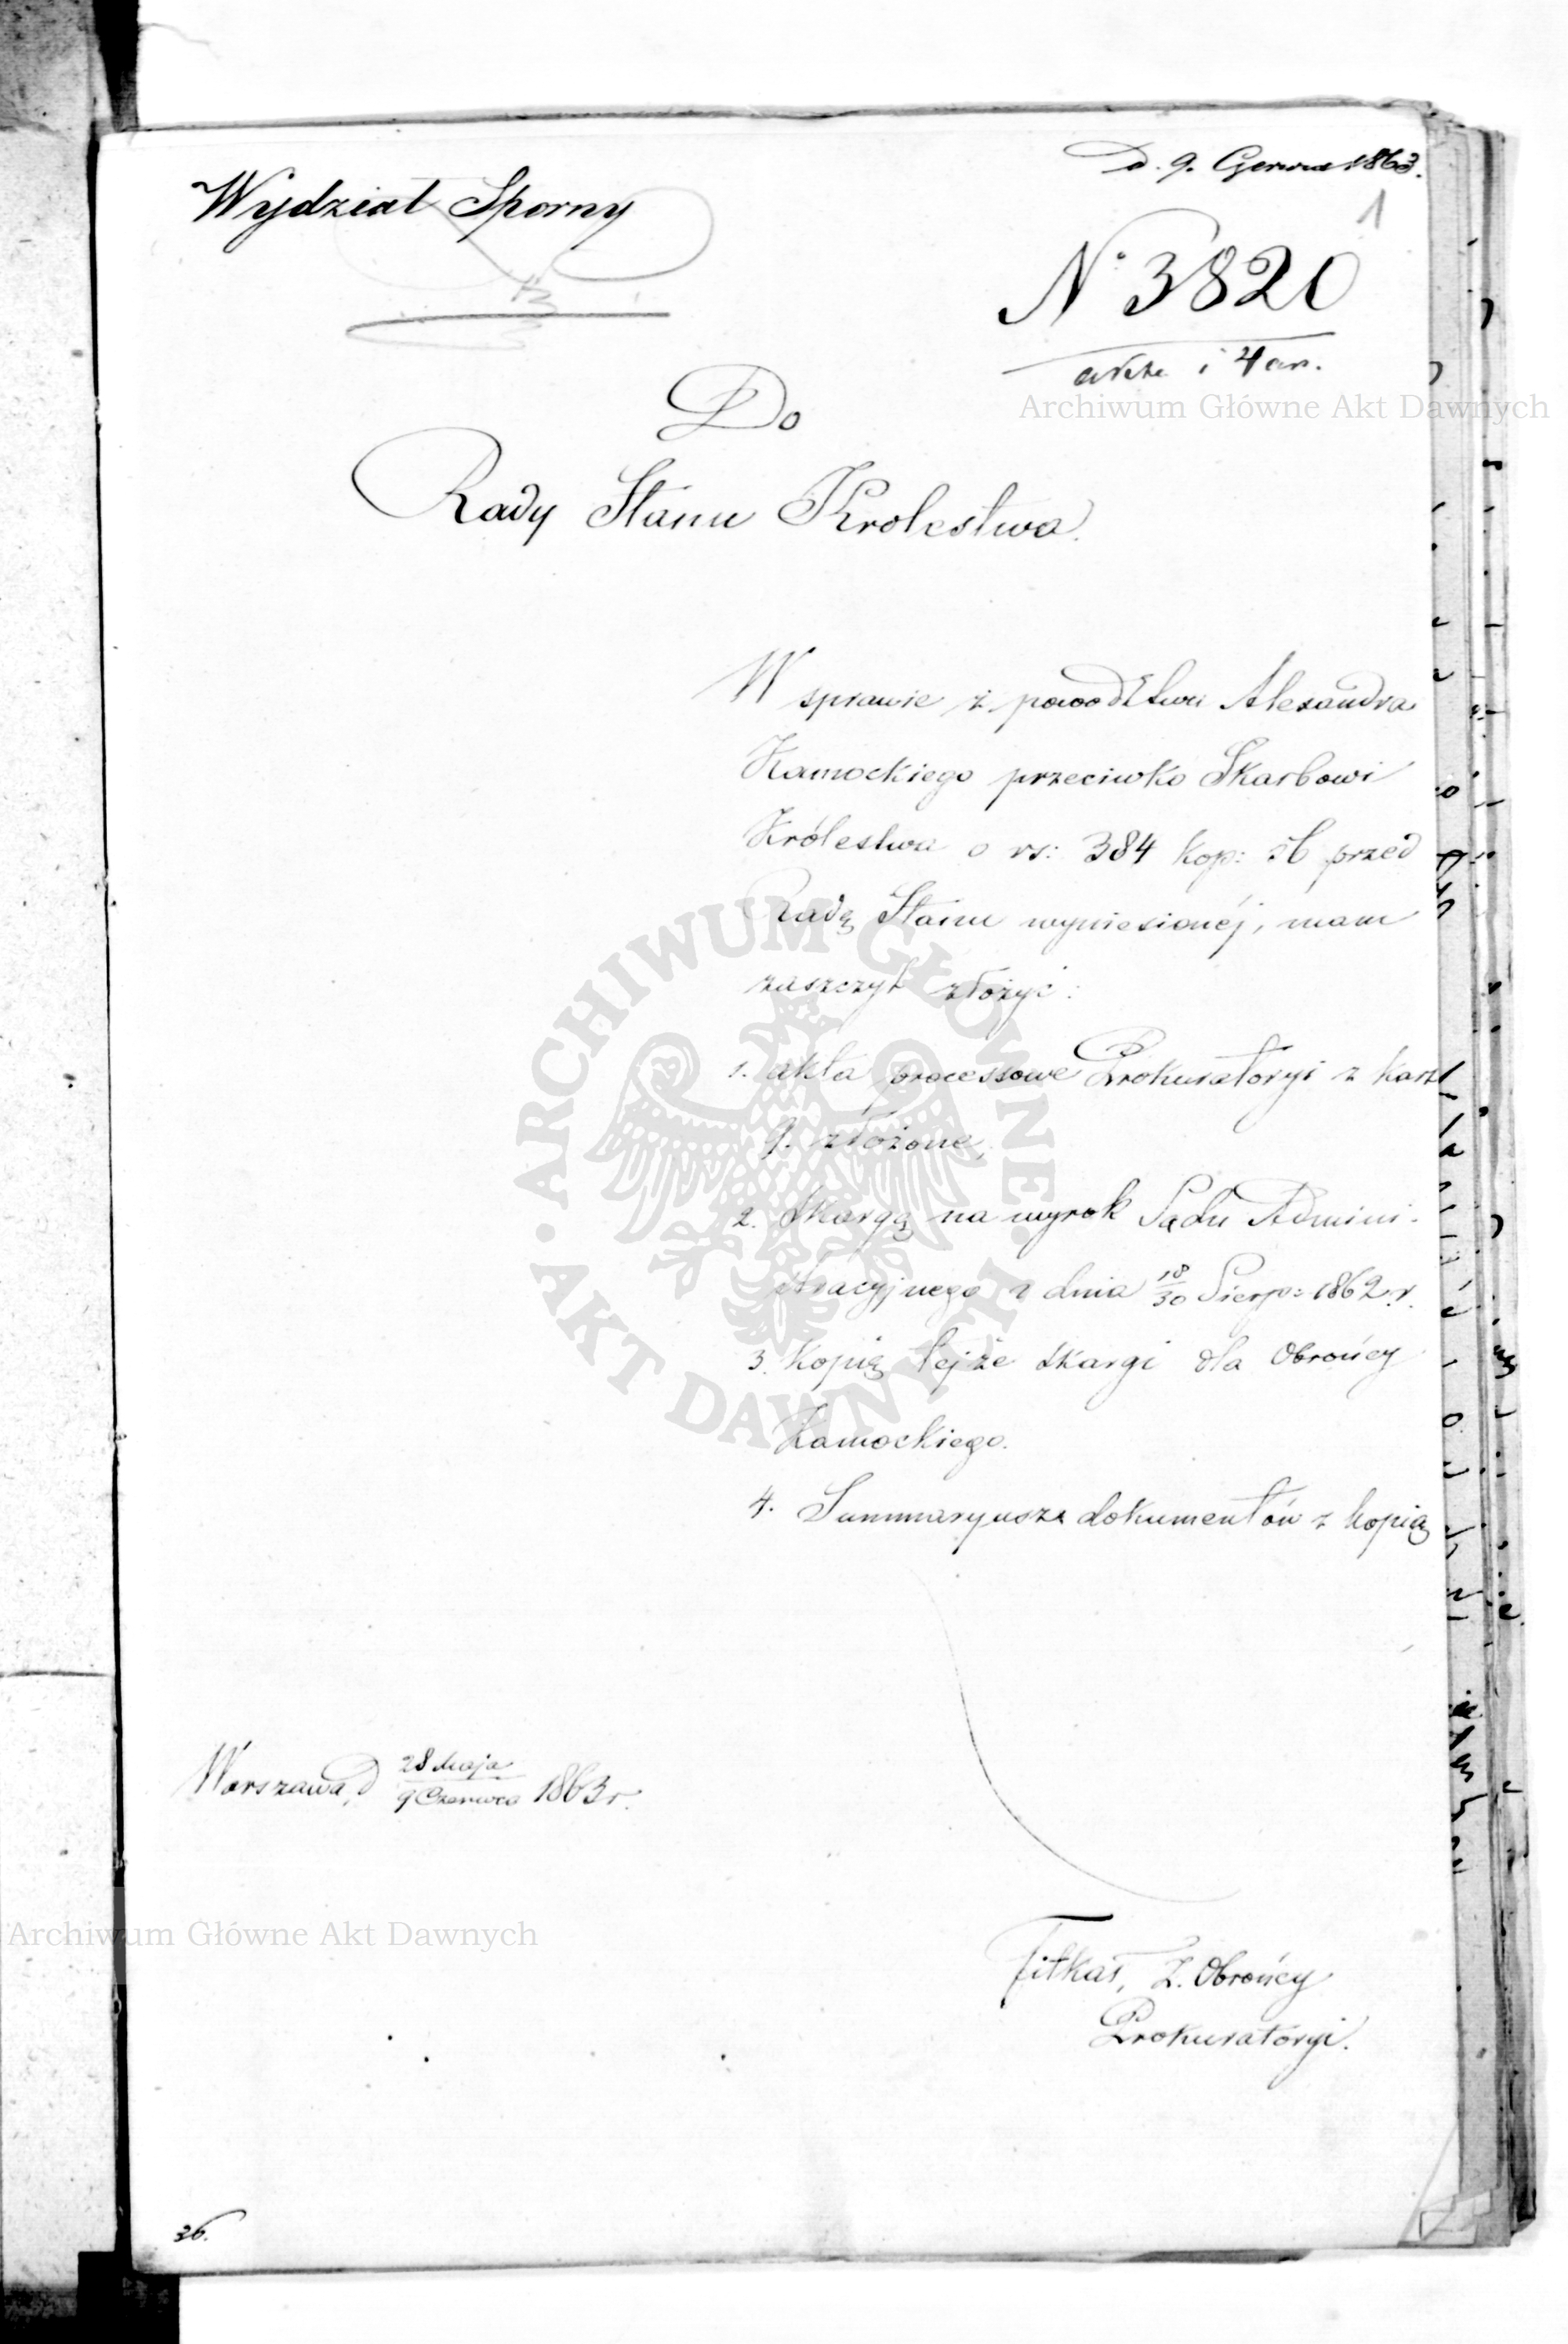 D. 9. Czerwca 1863.
1
Wydział Sporny
N° 3820
akta i 4 an.
Archiwum Główne Akt Dawnych
Do
Rady Stanu Krolestwa.
W sprawie z powodztwa Alexandra
Kamockiego przeciwko Skarbowi
Królestwa o rs: 384 kop: 36 przed
Radę Stanu wyniesionéj, mam
zaszczyt złożyć:
1. akta processowe Prokuratoryi z kart
9. złożone,
2. Skargę na wyrok Sądu Admini-
stracyjnego z dnia 18/30 Sierp: 1862 r.
3. Kopię tejże skargi dla Obrońcy
Kamockiego.
4. Summaryusze dokumentów z kopią
ARCHIWUM GŁÓWNE AKT DAWNYCH
Warszawa, d 28 Maja / 9 Czerwca 1863 r.
Archiwum Główne Akt Dawnych
Z. Obrońcy
Prokuratoryi.
36.